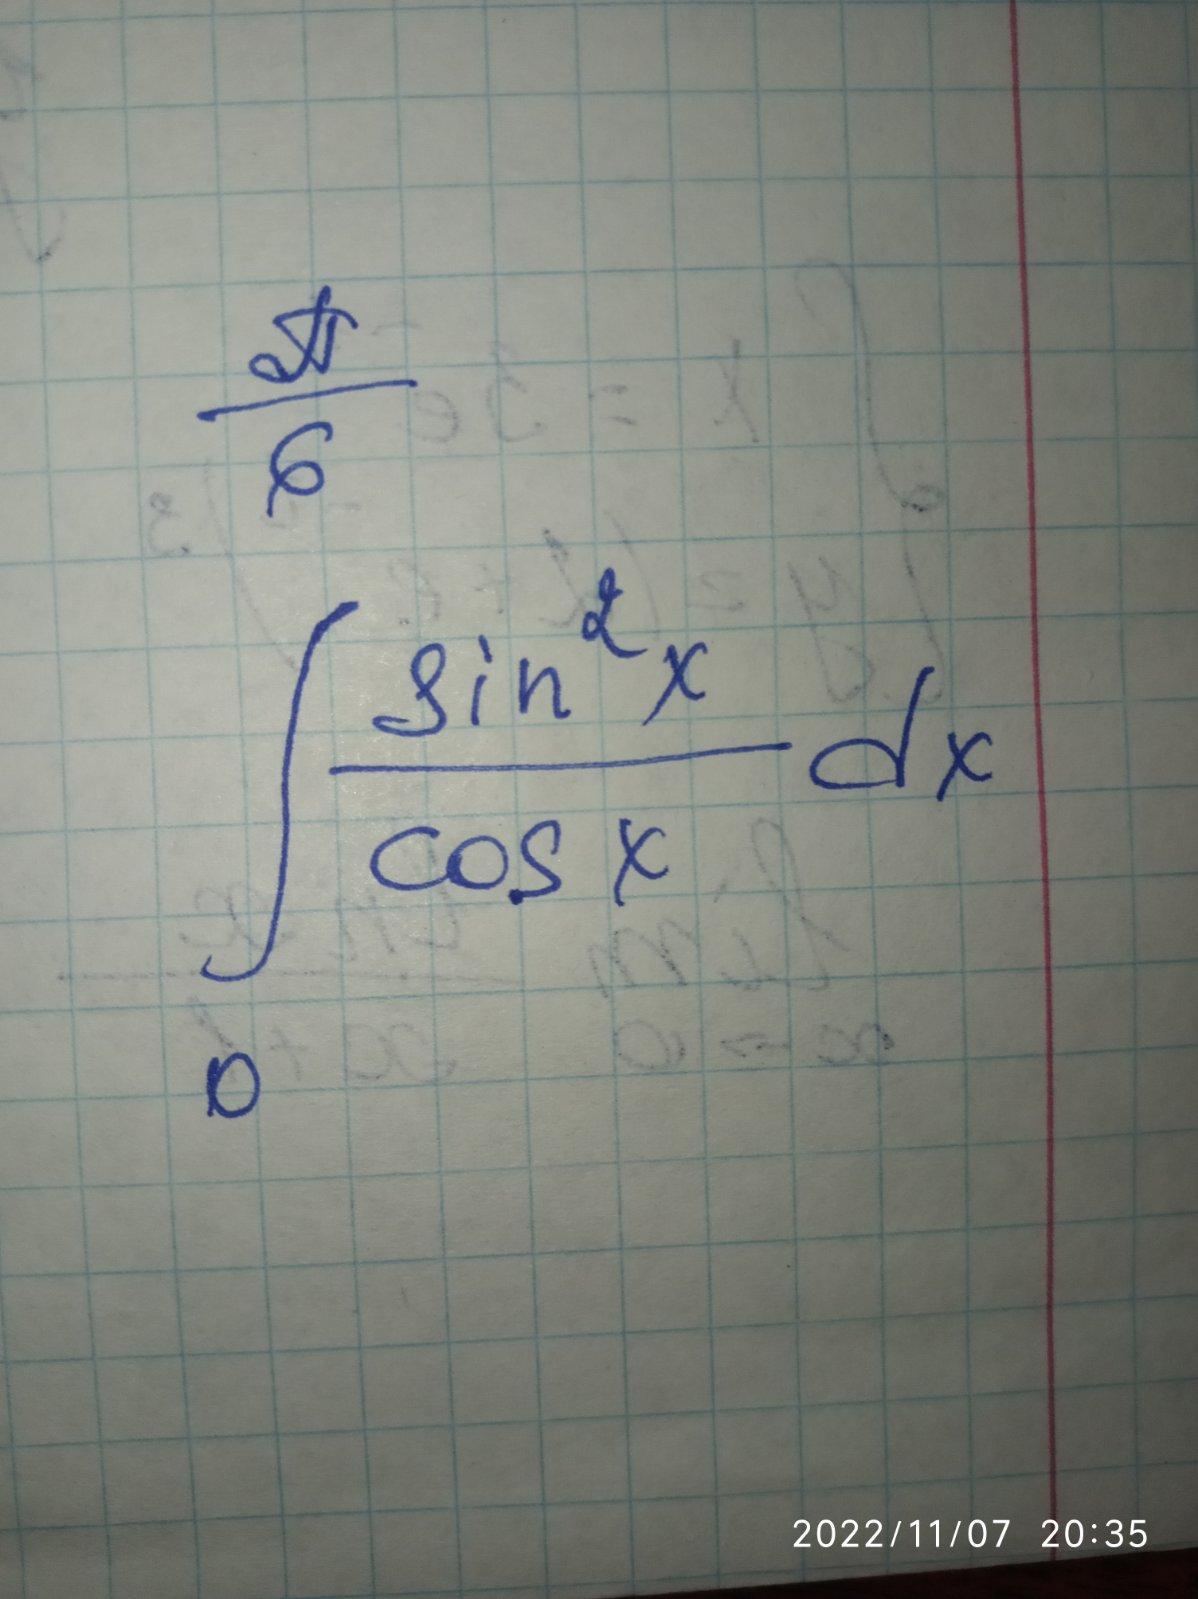 π
6
∫ sin²x dx
cos x
0
2022/11/07 20:35